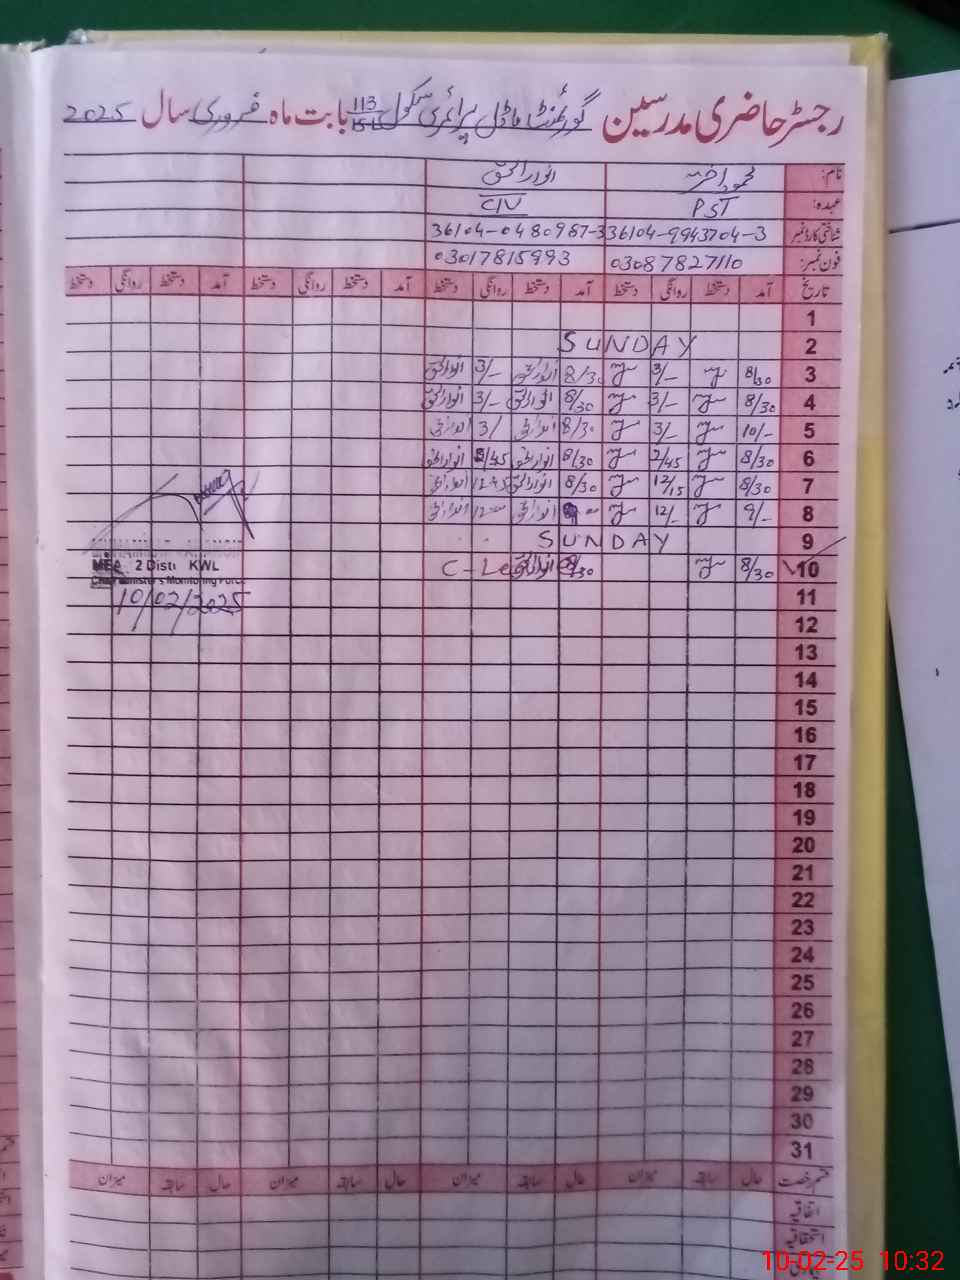 رجسٹر حاضری مدرسین گورنمنٹ ماڈل پرائمری سکول 113/15-L بابت ماہ فروری سال 2025
نام: محمود اختر انوار الحق
عہدہ: PST CIV
شناختی کارڈ نمبر 36104-9943704-3 36104-0480987-3
فون نمبر: 03087827110 03017815993
تاریخ آمد دستخط روانگی دستخط آمد دستخط روانگی دستخط آمد دستخط روانگی دستخط آمد دستخط روانگی دستخط
1
2 SUNDAY
3 8/30 3/- 8/30 انوار الحق 3/- انوار الحق
4 8/30 3/- 8/30 انوار الحق 3/- انوار الحق
5 10/- 3/- 8/30 انوار الحق 3/ انوار الحق
6 8/30 2/45 8/30 انوار الحق /45 انوار الحق
7 8/30 12/15 8/30 انوار الحق 1245 انوار الحق
8 9/- 12/- انوار الحق انوار الحق
9 SUNDAY
10 8/30 /30 انوار الحق C-Le
MEA 2 Distt KWL
Chief Minister's Monitoring Force
10/02/2025
11
12
13
14
15
16
17
18
19
20
21
22
23
24
25
26
27
28
29
30
31
قسم رخصت حال سابقہ میزان حال سابقہ میزان حال سابقہ میزان حال سابقہ میزان
اتفاقیہ
استحقاقیہ
10-02-25 10:32